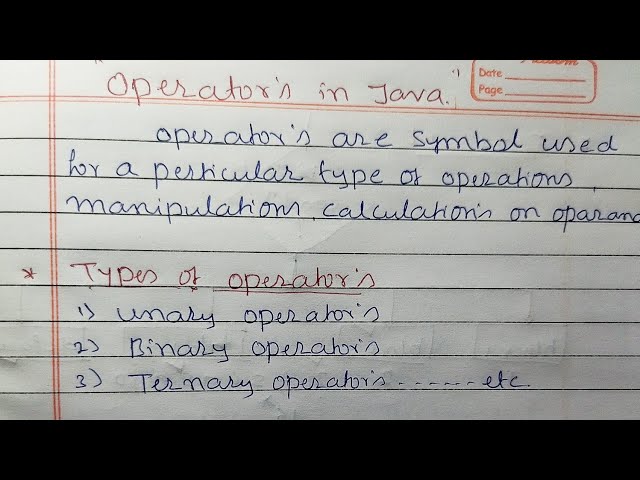 Operator's in Java.
Date
Page
operator's are symbol used
for a perticular type of operations,
manipulations, calculation's on oparand
* Types of operator's
1) unary operator's
2) Binary operator's
3) Ternary operator's ------ etc.